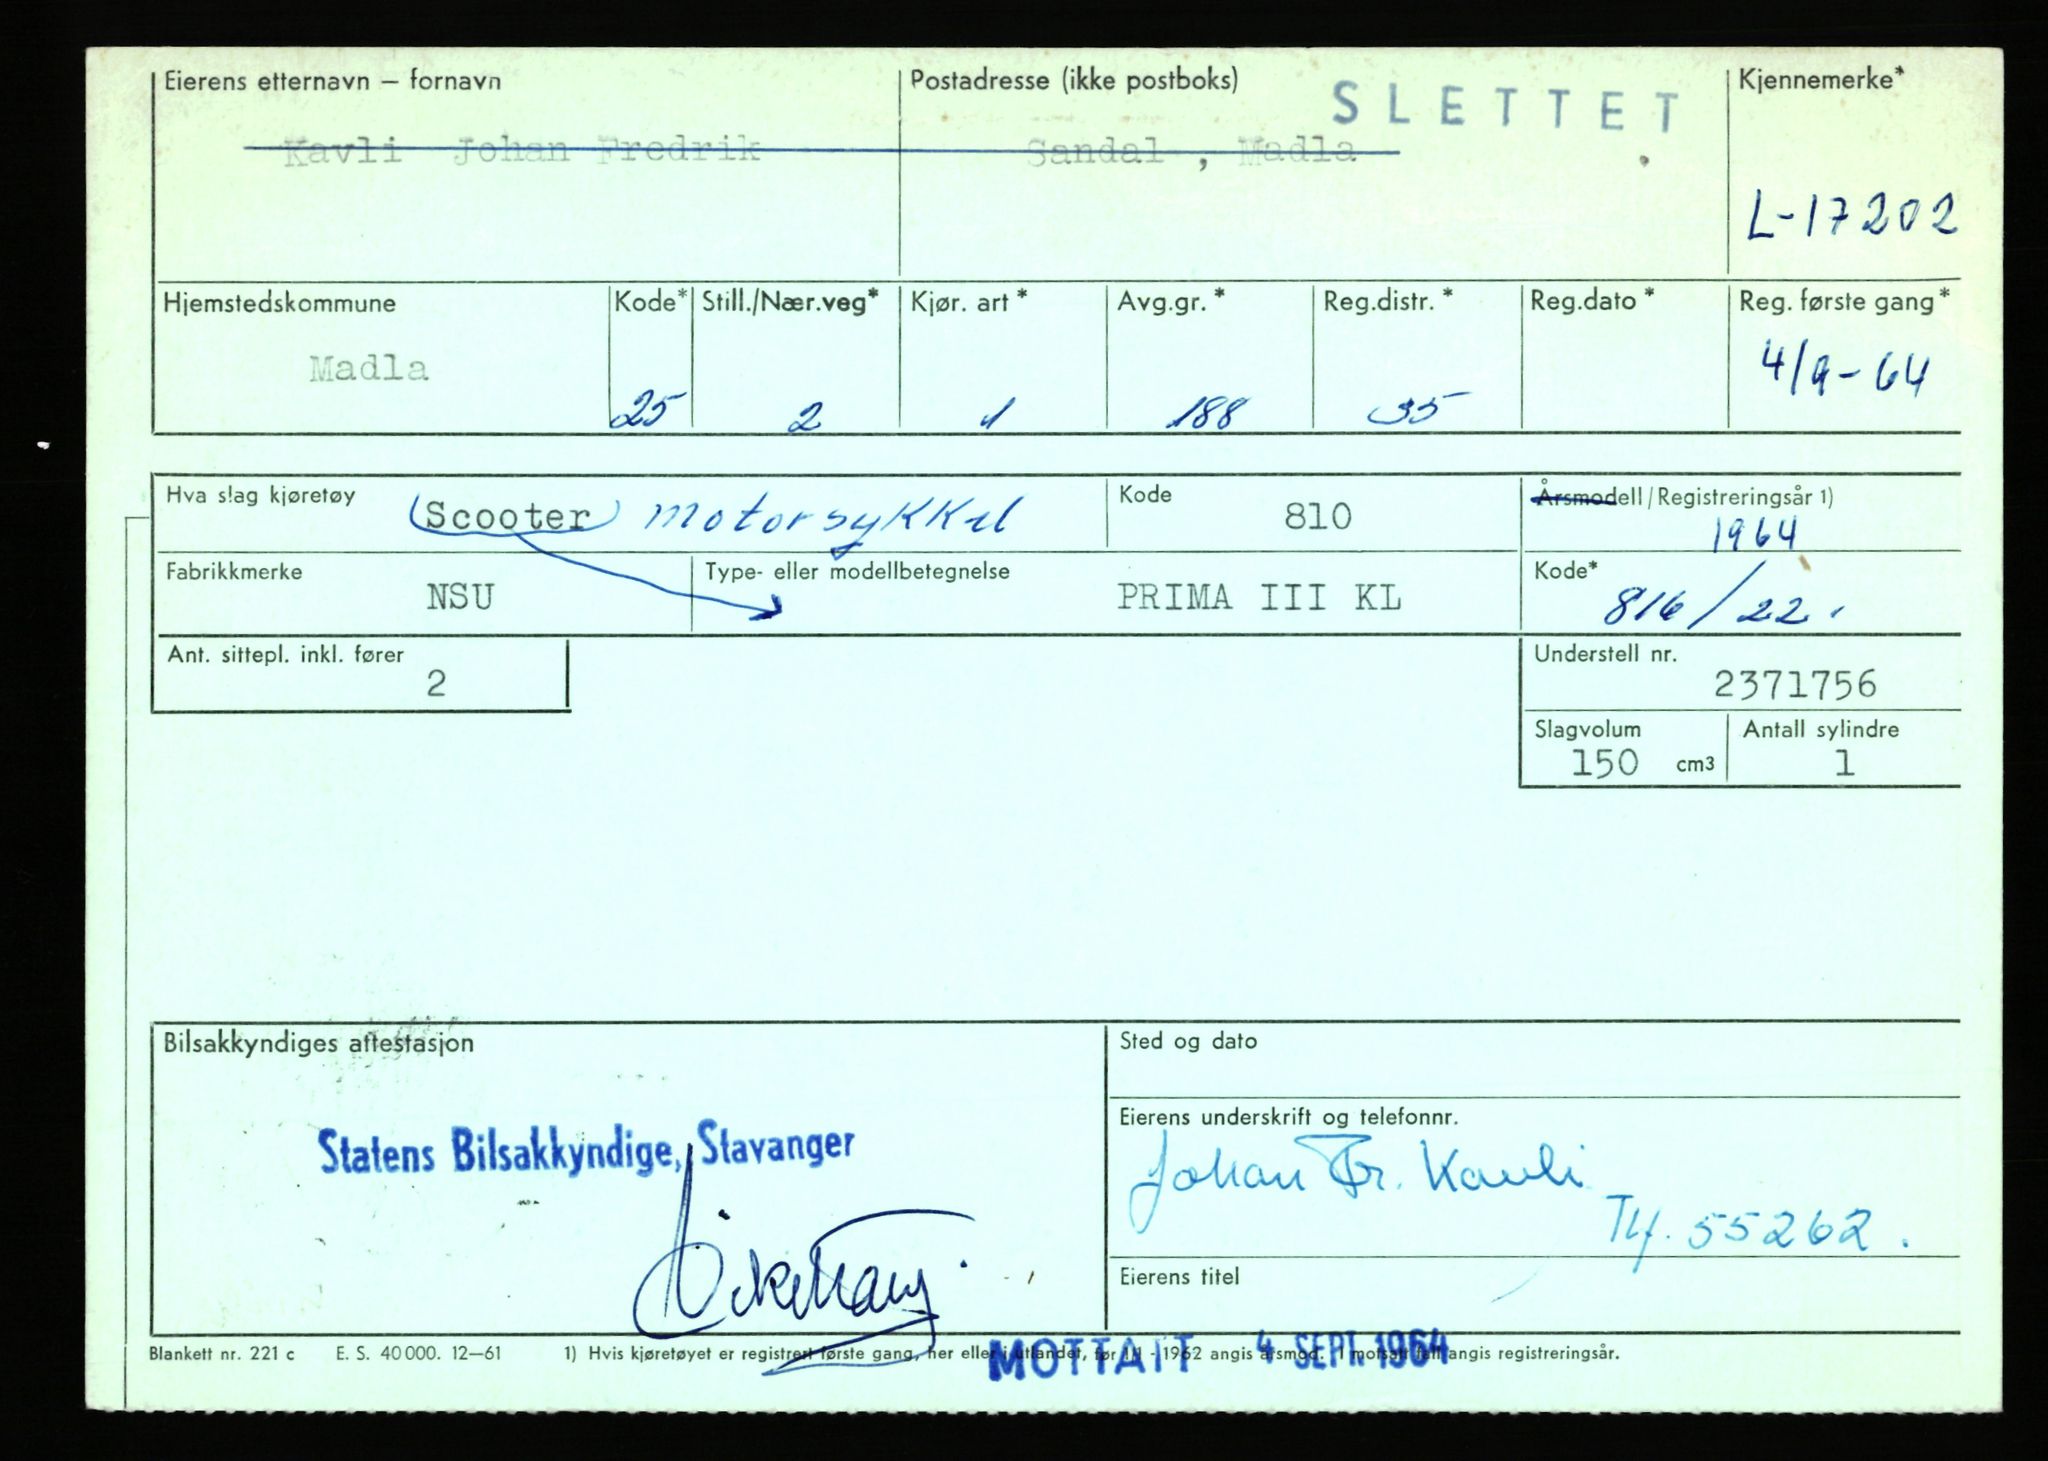 Eierens etternavn — fornavn
Kavli Johan Fredrik
Postadresse (ikke postboks)
SLETTET
Sandal , Madla
Kjennemerke*
L-17202
Hjemstedskommune
Madla
Kode*
25
Still./Nær.veg*
2
Kjør. art *
1
Avg.gr. *
188
Reg.distr. *
35
Reg.dato *
Reg. første gang*
4/9-64
Hva slag kjøretøy
(Scooter) motorsykkel
Kode
810
Årsmodell/Registreringsår 1)
1964
Fabrikkmerke
NSU
Type- eller modellbetegnelse
PRIMA III KL
Kode*
816/22.
Ant. sittepl. inkl. fører
2
Understell nr.
2371756
Slagvolum
150 cm3
Antall sylindre
1
Bilsakkyndiges attestasjon
Statens Bilsakkyndige, Stavanger
Sted og dato
Eierens underskrift og telefonnr.
Johan Fr. Kavli
Tlf. 55262.
Eierens titel
Blankett nr. 221 c E. S. 40 000. 12—61 1) Hvis kjøretøyet er registrert første gang, her eller i utlandet, før 1/1 - 1962 angis årsmod. I motsatt fall angis registreringsår.
MOTTATT 4 SEPT. 1964